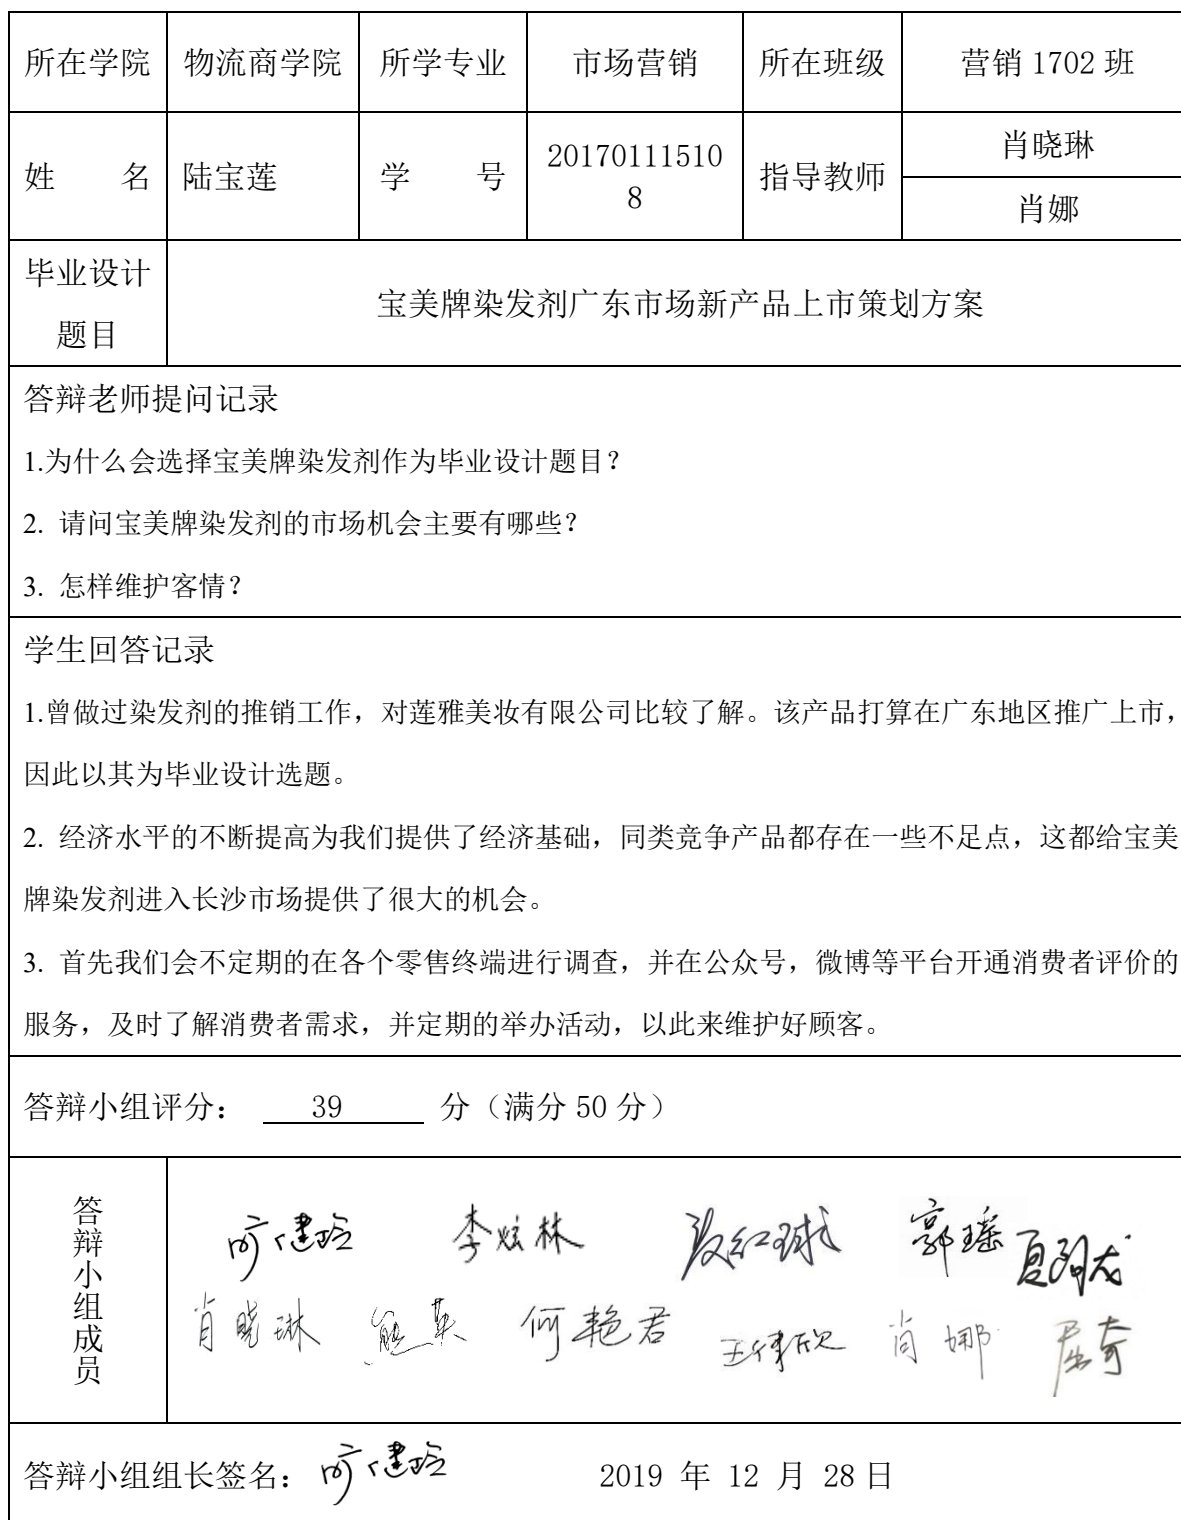 所在学院 物流商学院 所学专业 市场营销 所在班级 营销 1702 班
姓 名 陆宝莲 学 号 20170111510 指导教师 肖晓琳
8 肖娜
毕业设计
题目
宝美牌染发剂广东市场新产品上市策划方案
答辩老师提问记录
1.为什么会选择宝美牌染发剂作为毕业设计题目？
2. 请问宝美牌染发剂的市场机会主要有哪些？
3. 怎样维护客情？
学生回答记录
1.曾做过染发剂的推销工作，对莲雅美妆有限公司比较了解。该产品打算在广东地区推广上市，
因此以其为毕业设计选题。
2. 经济水平的不断提高为我们提供了经济基础，同类竞争产品都存在一些不足点，这都给宝美
牌染发剂进入长沙市场提供了很大的机会。
3. 首先我们会不定期的在各个零售终端进行调查，并在公众号，微博等平台开通消费者评价的
服务，及时了解消费者需求，并定期的举办活动，以此来维护好顾客。
答辩小组评分： 39 分（满分 50 分）
答辩小组成员
李炫林 郭瑶
肖晓琳 熊英 何艳君 肖娜 屈奇
答辩小组组长签名： 2019 年 12 月 28 日